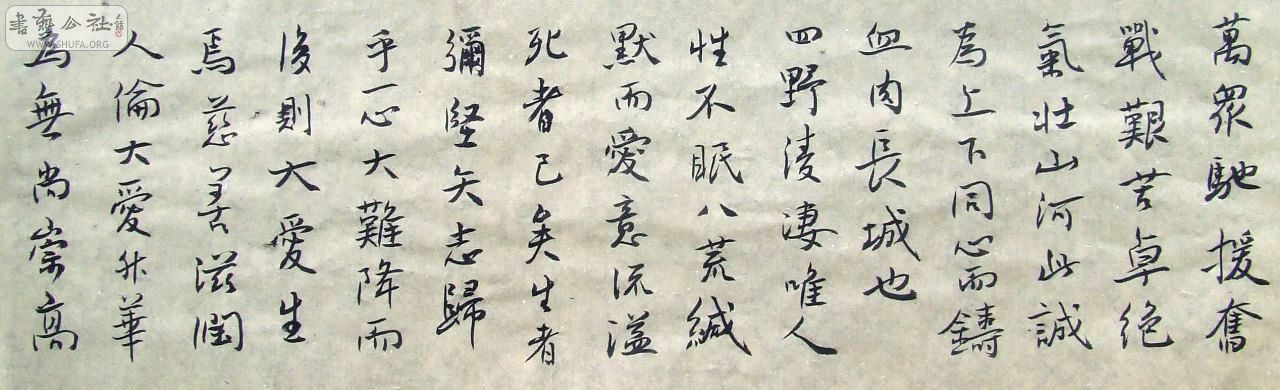 萬眾馳援奮
戰艱苦卓絶
氣壯山河此誠
為上下同心而鑄
血肉長城也
四野淒淒唯人
性不眠八荒緘
默而愛意流溢
死者已矣生者
彌堅矢志歸
乎一心大難降而
後則大愛生
焉慈善滋潤
人倫大愛升華
為無尚崇高
書藝公社
WWW.SHUFA.ORG